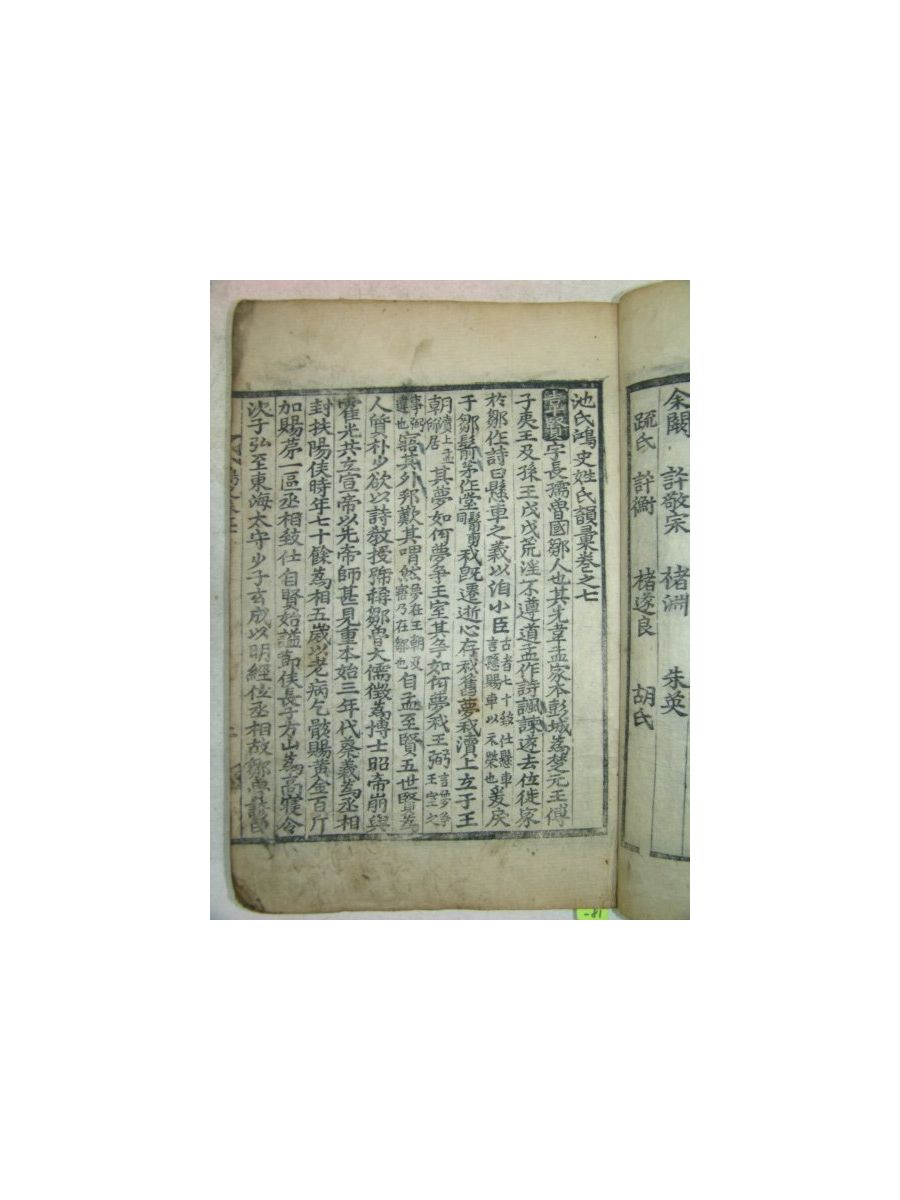 余闕 許敬宗 褚淵 朱英
疏氏 許衡 褚遂良 胡氏
池氏鴻史姓氏韻彙卷之七
韋賢字長孺魯國鄒人也其先韋孟家本彭城爲楚元王傅
子夷王及孫王戊戊荒淫不遵道孟作詩諷諫遂去位徙家
於鄒作詩曰懸車之義以洎小臣古者七十致仕懸車言隱賜車以示榮也爰戾
于鄒鬋茅作堂我旣遷逝心存我舊夢我瀆上立于王
朝瀆上孟所居其夢如何夢爭王室其爭如何夢我王弼言夢爭王室之
事弼違也寤其外邦歎其喟然夢在王朝及寤乃在鄒也自孟至賢五世賢爲
人質朴少欲以詩敎授號稱鄒魯大儒徵爲博士昭帝崩與
霍光共立宣帝以先帝師甚見重本始三年代蔡義爲丞相
封扶陽侯時年七十餘爲相五歲以老病乞骸賜黃金百斤
加賜第一區丞相致仕自賢始謚節侯長子方山爲高寢令
次子弘至東海太守少子玄成以明經位丞相故鄒魯諺曰
-81